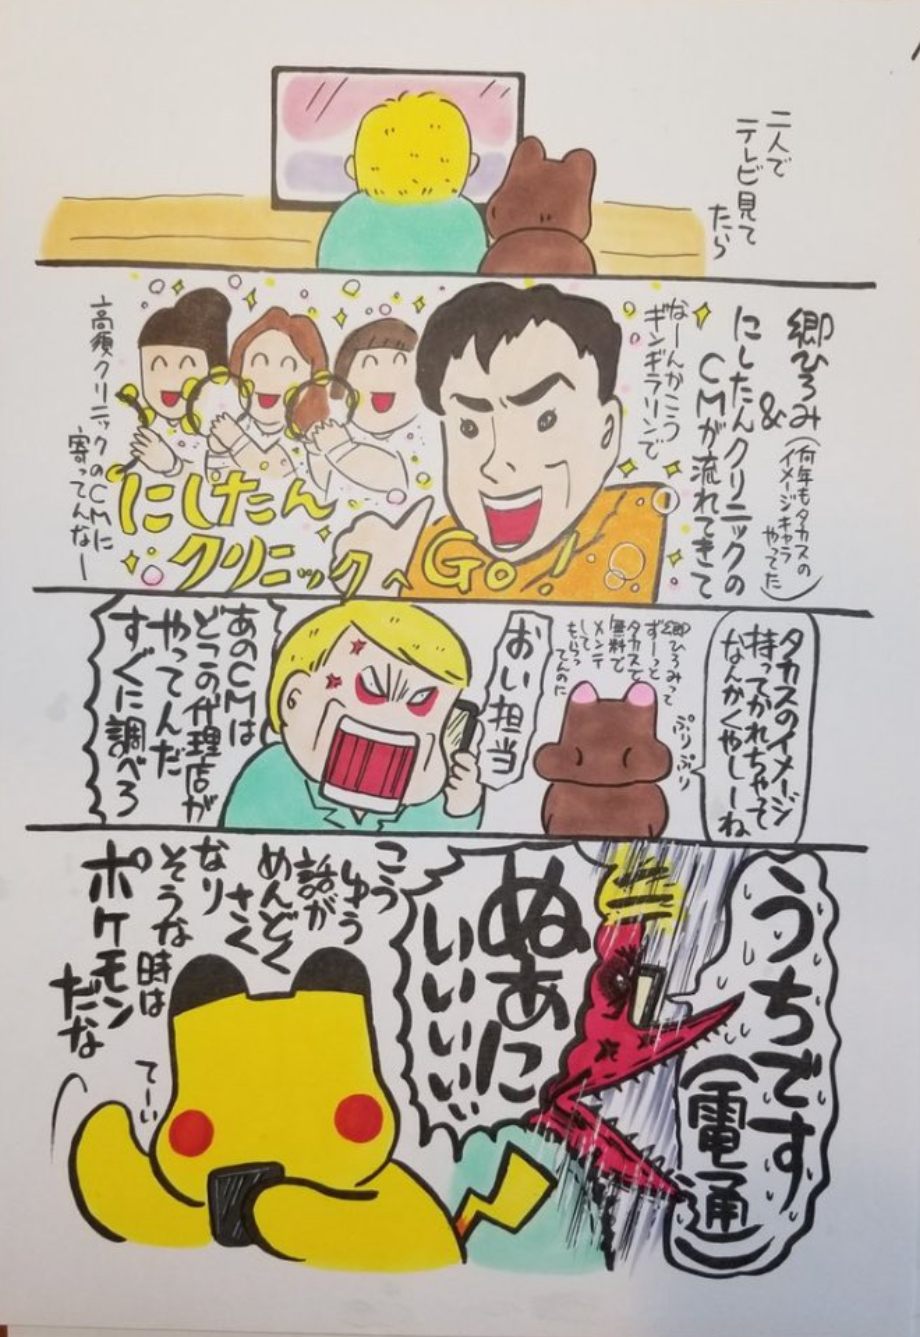 二人で
テレビ見て
たら
郷ひろみ
(何年もタカスの
イメージキャラ
やってた)
&
にしたんクリニックの
CMが流れてきて
なーんかこう
ギンギラリーンで
にしたん
クリニックへGo!
高須クリニックのCMに
寄ってんなー
タカスのイメージ
持ってかれちゃって
なんかくやしーね
ぷりぷり
郷ひろみって
ずーっと
タカスで
無料で
メンテ
して
もらっ
てんのに
おい担当
あのCMは
どこの代理店が
やってんだ
すぐに調べろ
うちです
(電通)
ぬあに
いいいいい
こう
ゆう
話が
めんどく
さく
なり
そうな
時は
ポケモン
だな
てーい